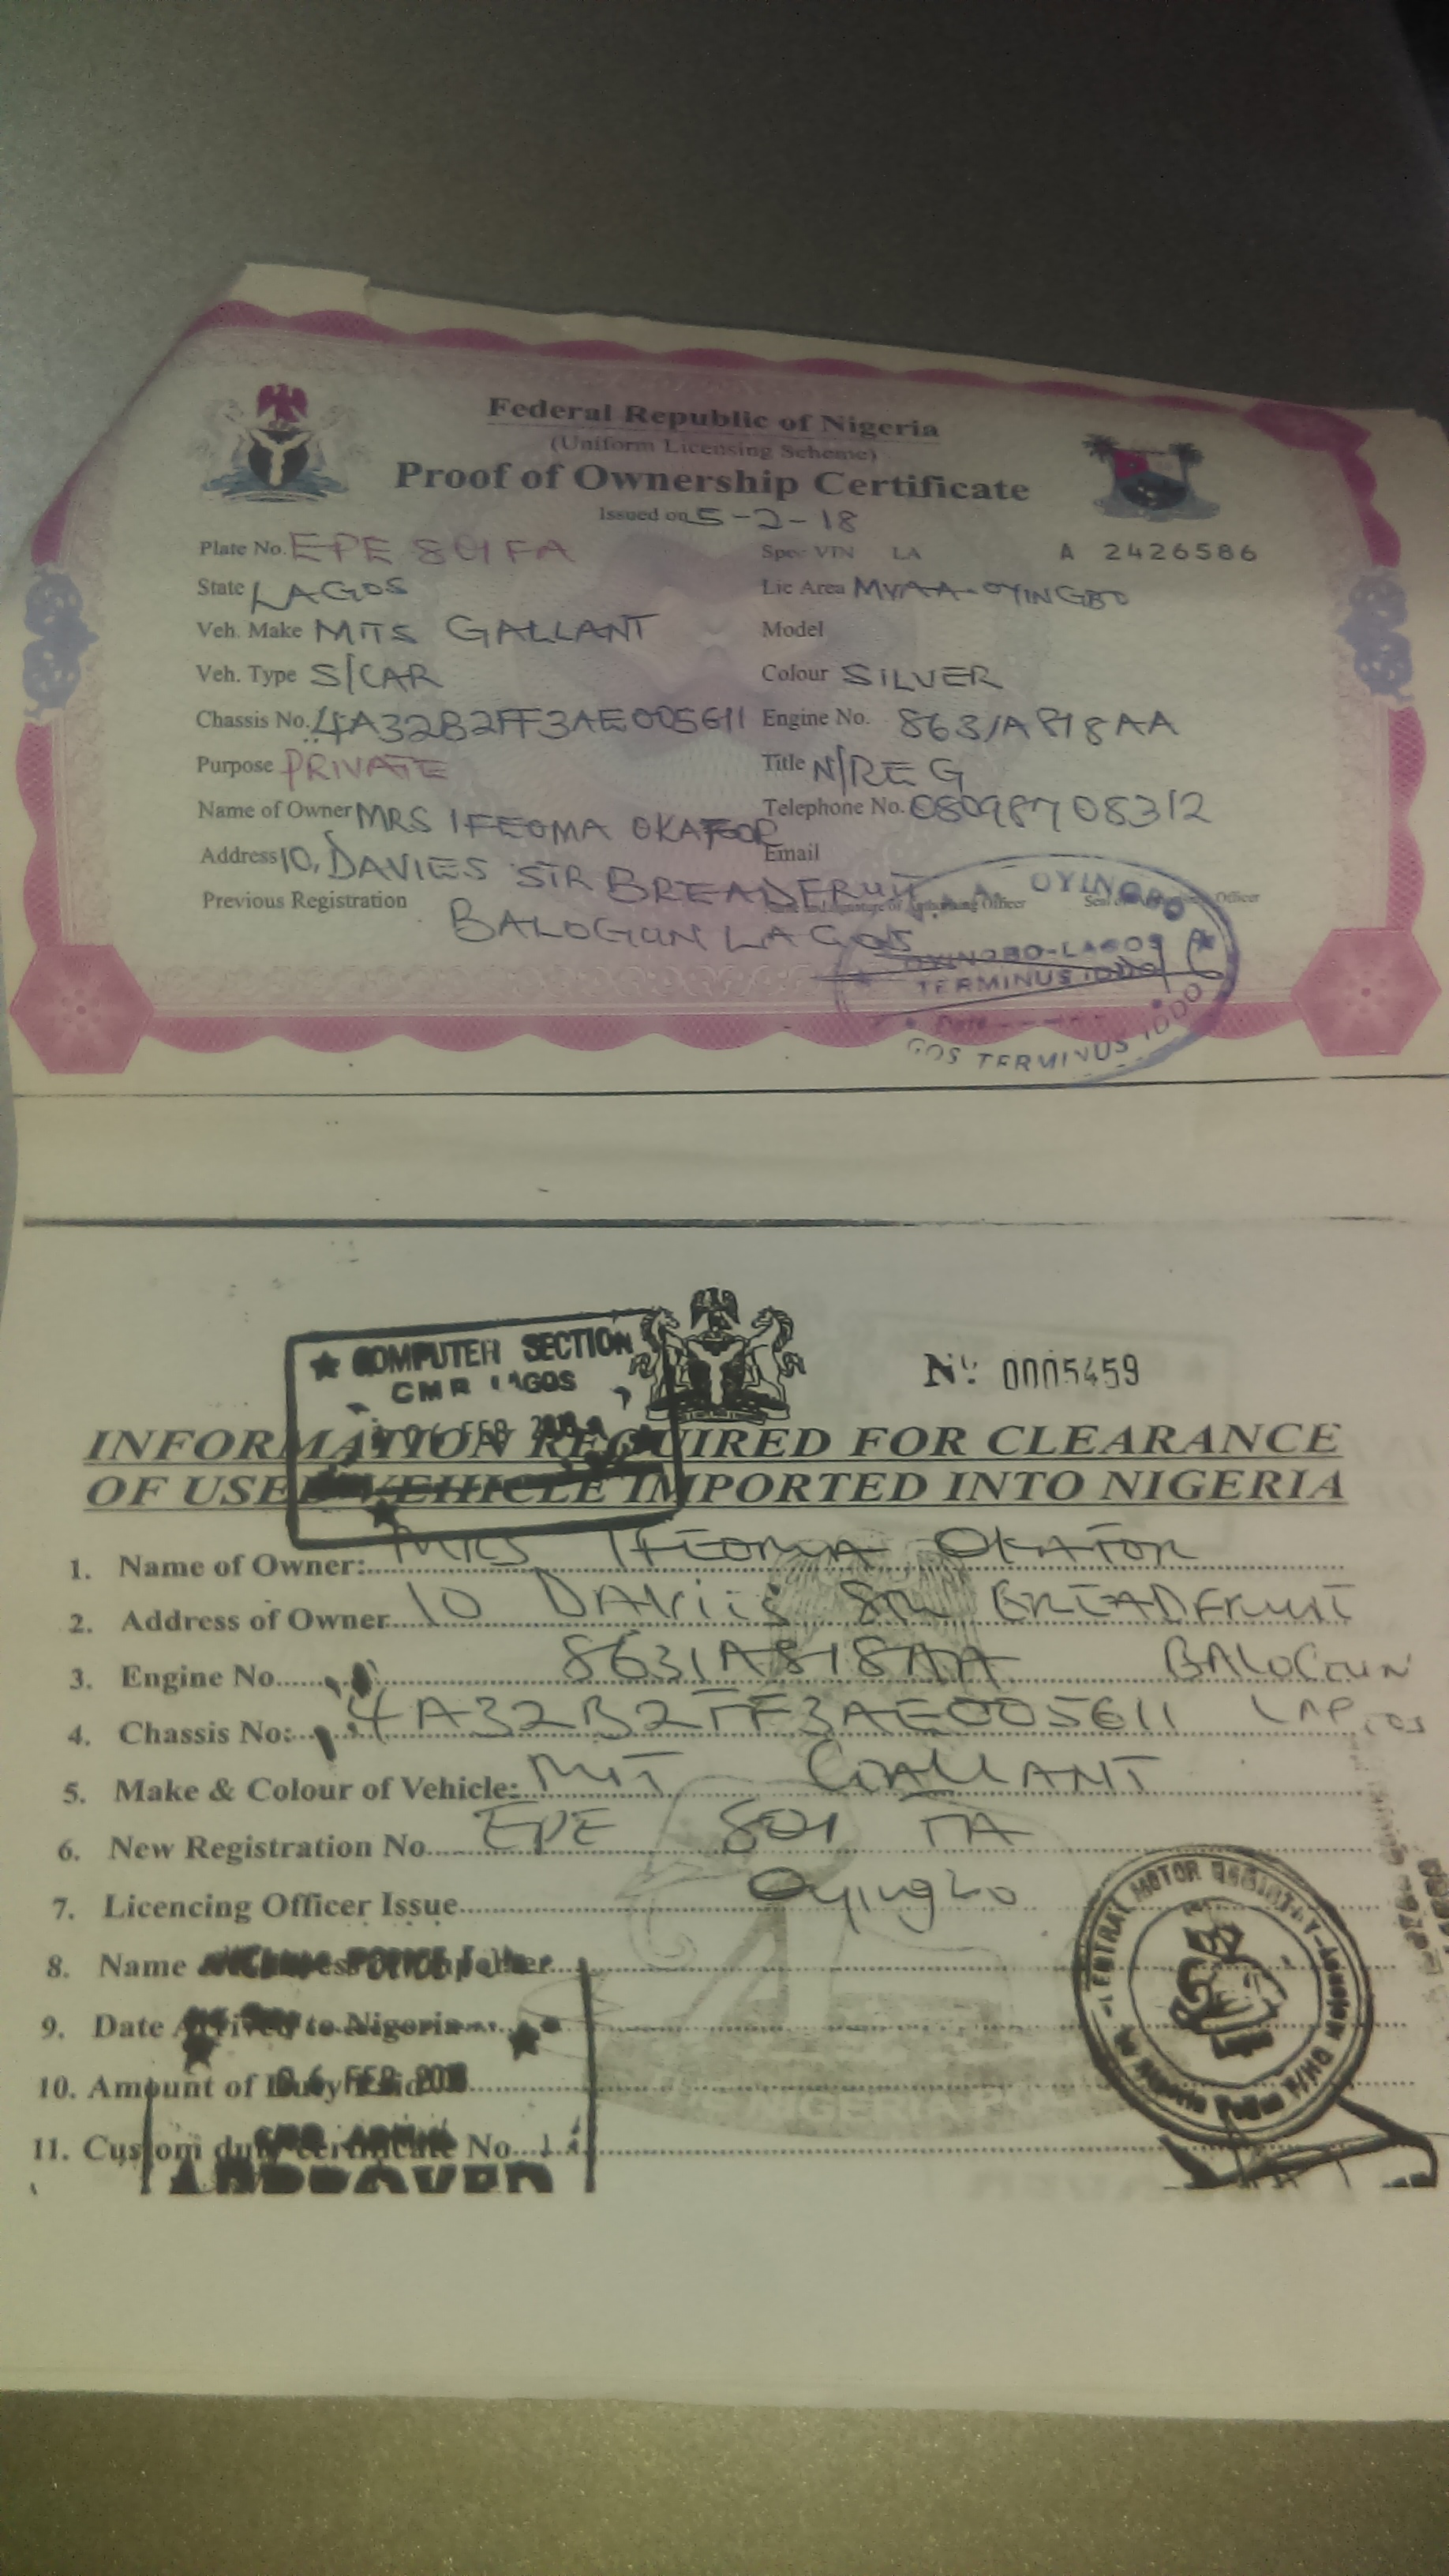 Federal Republic of Nigeria
(Uniform Licensing Scheme)
Proof of Ownership Certificate
Issued on 5-2-18
Plate No. EPE 801 FA Spec VIN LA A 2426586
State LAGOS Lic Area MVAA-OYINGBO
Veh. Make MITS GALLANT Model
Veh. Type S/CAR Colour SILVER
Chassis No. 4A32B2FF3AE005611 Engine No. 8631A818AA
Purpose PRIVATE Title N/REG
Name of Owner MRS IFEOMA OKAFOR Telephone No. 08098708312
Address 10, DAVIES STR BREADFRUIT Email
Previous Registration BALOGUN LAGOS
OYINGBO
OYINGBO-LAGOS
TERMINUS IDDO
GOS TERMINUS IDDO
COMPUTER SECTION
CMR LAGOS
06 FEB
Nº 0005459
INFORMATION REQUIRED FOR CLEARANCE
OF USED VEHICLE IMPORTED INTO NIGERIA
1. Name of Owner: MRS IFEOMA OKAFOR
2. Address of Owner 10 DAVIES STR BREADFRUIT
3. Engine No. 8631A818AA BALOGUN
4. Chassis No: 4A32B2FF3AE005611 LAGOS
5. Make & Colour of Vehicle: MIT GALLANT
6. New Registration No. EPE 801 FA
7. Licencing Officer Issue Oyingbo
8. Name
9. Date Arrived to Nigeria
10. Amount of Duty
06 FEB
11. Custom duty certificate No.
CENTRAL MOTOR REGISTRY